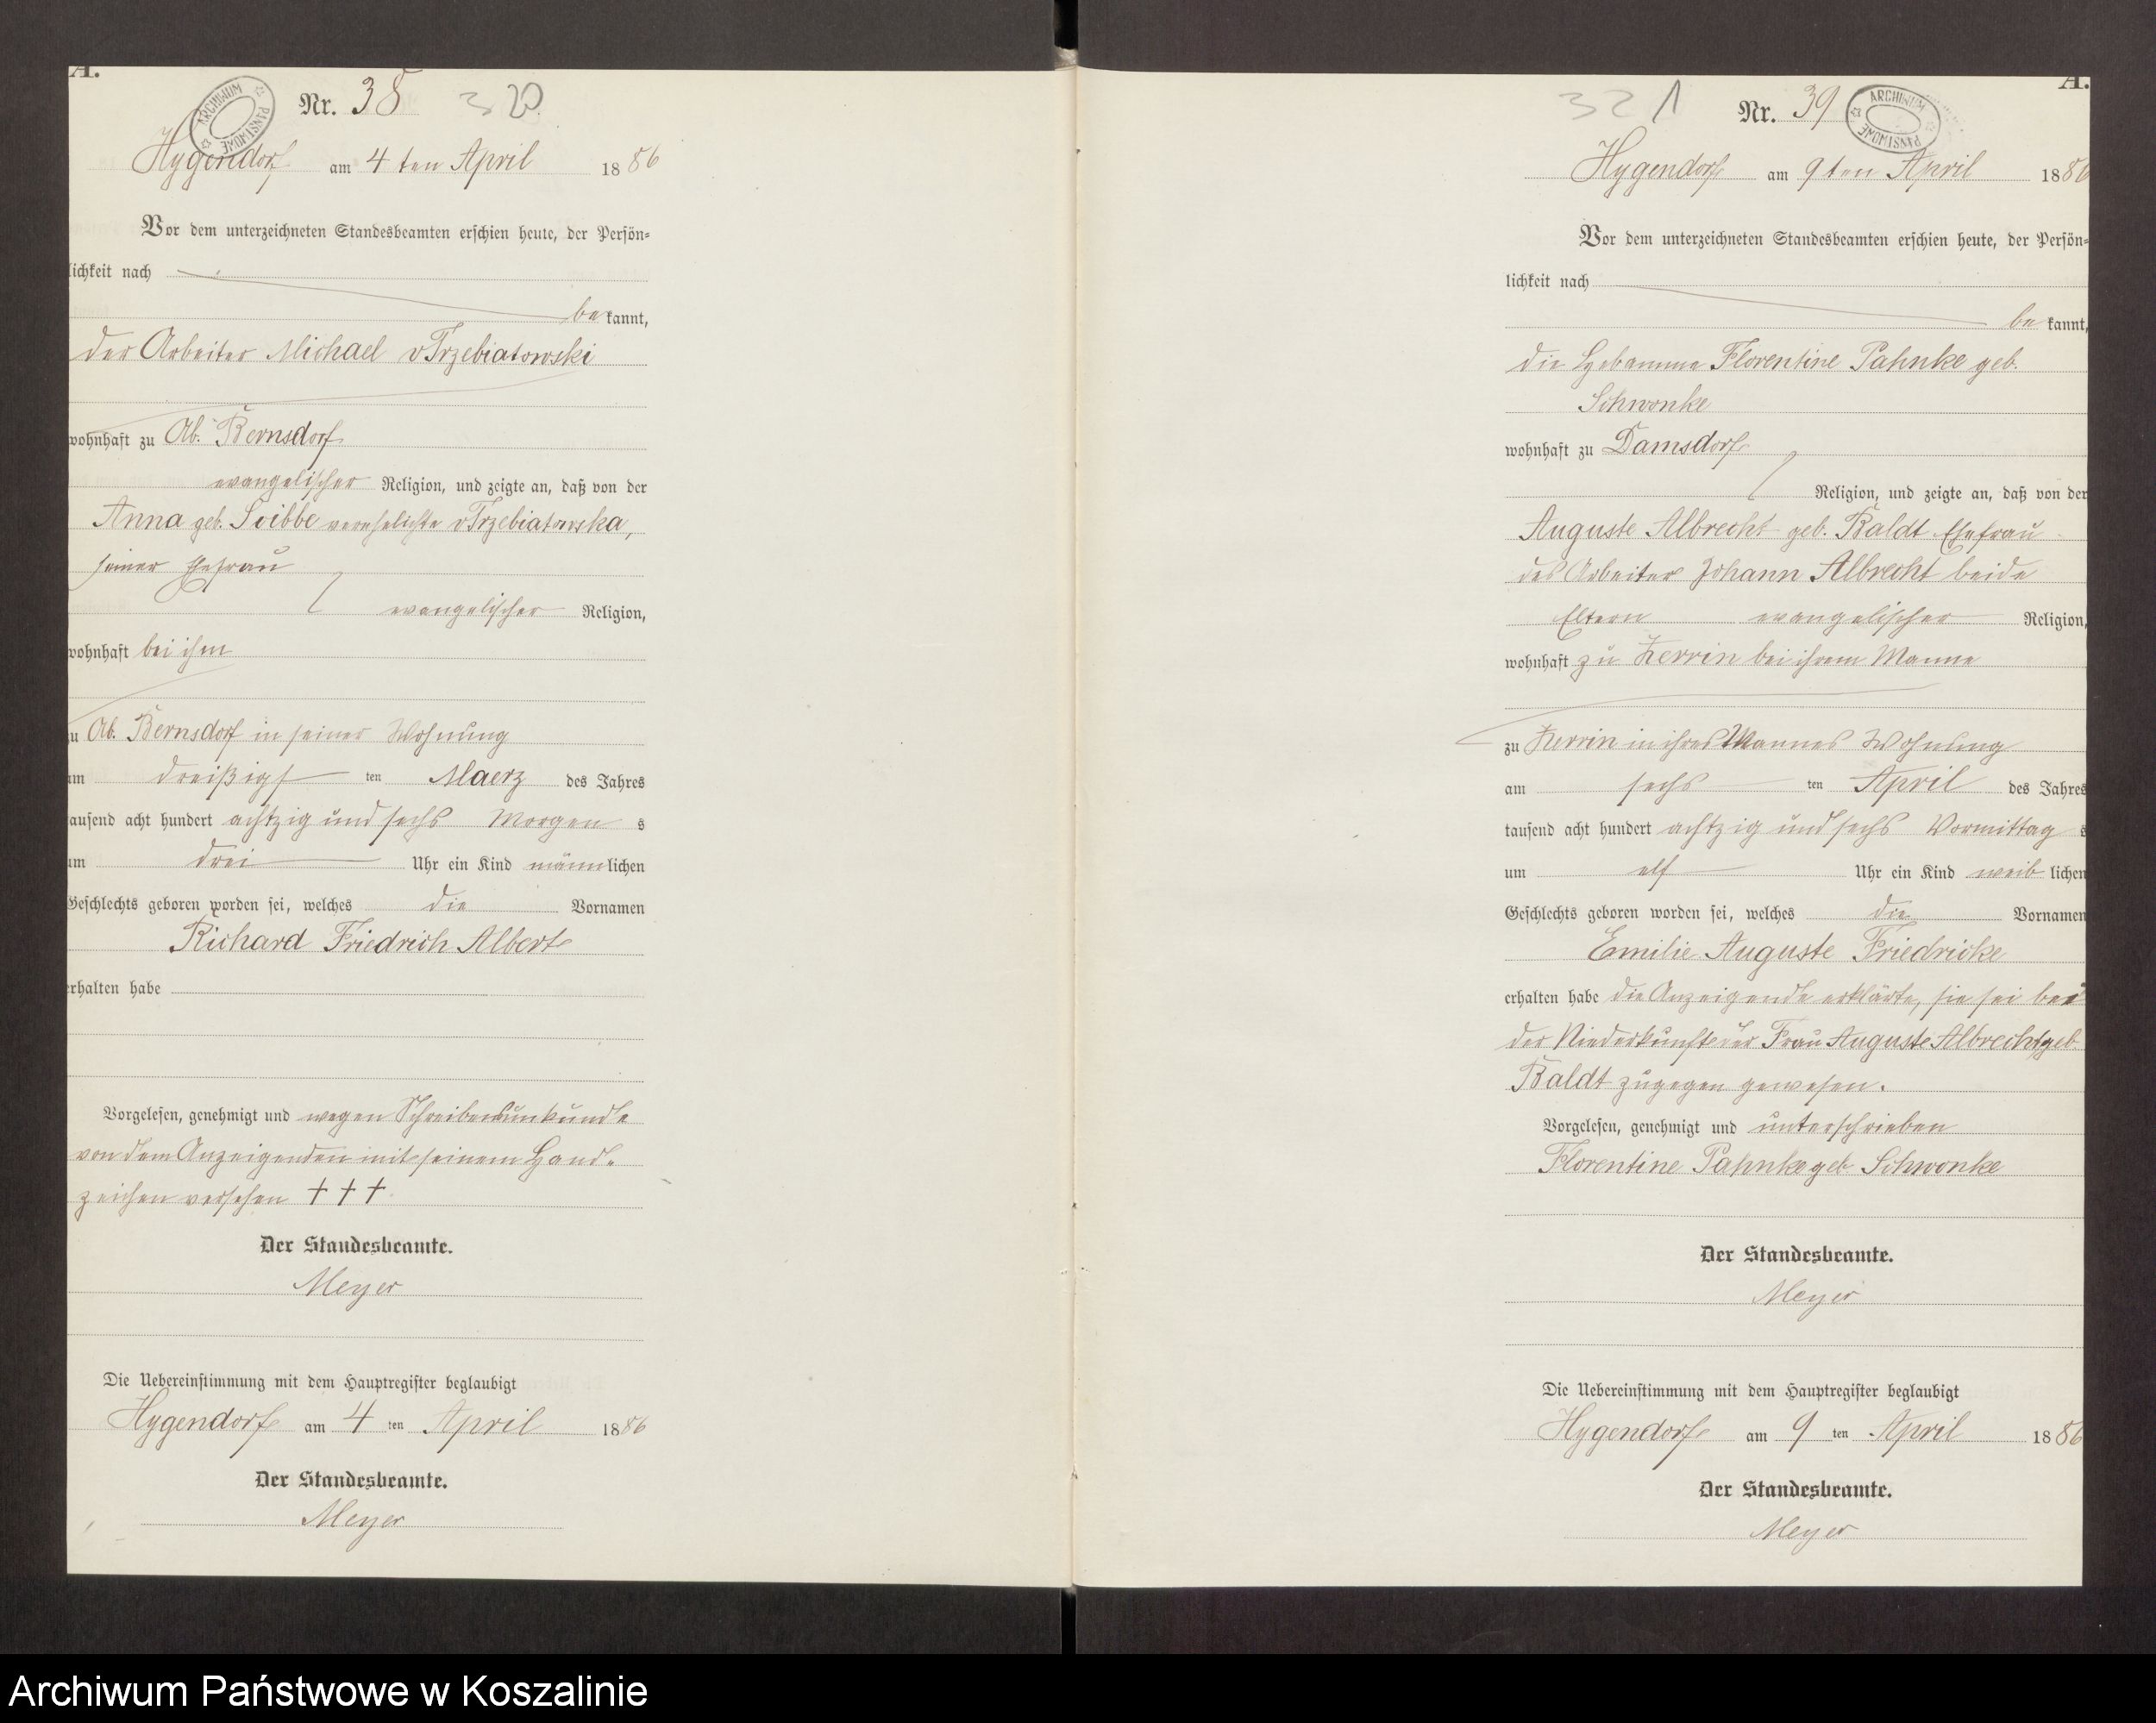 A.
ARCHIWUM PAŃSTWOWE
Nr. 38 320.
Hygendorf am 4 ten April 1886
Vor dem unterzeichneten Standesbeamten erschien heute, der Persön=
lichkeit nach
be kannt,
der Arbeiter Michael v Trzebiatowski
wohnhaft zu Ab. Bernsdorf
evangelischer Religion, und zeigte an, daß von der
Anna geb. Scibbe verehelichte v Trzebiatowska,
seiner Ehefrau
evangelischer Religion,
wohnhaft bei ihm
zu Ab. Bernsdorf in seiner Wohnung
am dreißigst ten Maerz des Jahres
tausend acht hundert achtzig und sechs Morgen s
um drei Uhr ein Kind männlichen
Geschlechts geboren worden sei, welches die Vornamen
Richard Friedrich Albert
erhalten habe
Vorgelesen, genehmigt und wegen Schreibensunkunde
von dem Anzeigenden mit seinem Hand-
zeichen versehen † † †
Der Standesbeamte.
Meyer
Die Uebereinstimmung mit dem Hauptregister beglaubigt
Hygendorf am 4 ten April 1886
Der Standesbeamte.
Meyer
A.
321 Nr. 39
ARCHIWUM PAŃSTWOWE
Hygendorf am 9 ten April 1886
Vor dem unterzeichneten Standesbeamten erschien heute, der Persön=
lichkeit nach
be kannt,
die Hebamme Florentine Pahnke geb.
Schwonke
wohnhaft zu Damsdorf
Religion, und zeigte an, daß von der
Auguste Albrecht geb. Baldt Ehefrau
des Arbeiter Johann Albrecht beide
Eltern evangelischer Religion,
wohnhaft zu Zerrin bei ihrem Manne
zu Zerrin in ihres Mannes Wohnung
am sechs ten April des Jahres
tausend acht hundert achtzig und sechs Vormittag s
um elf Uhr ein Kind weib lichen
Geschlechts geboren worden sei, welches die Vornamen
Emilie Auguste Friedricke
erhalten habe die Anzeigende erklärte, sie sei bei
der Niederkunft der Frau Auguste Albrecht geb.
Baldt zugegen gewesen.
Vorgelesen, genehmigt und unterschrieben
Florentine Pahnke geb Schwonke
Der Standesbeamte.
Meyer
Die Uebereinstimmung mit dem Hauptregister beglaubigt
Hygendorf am 9 ten April 1886
Der Standesbeamte.
Meyer
Archiwum Państwowe w Koszalinie